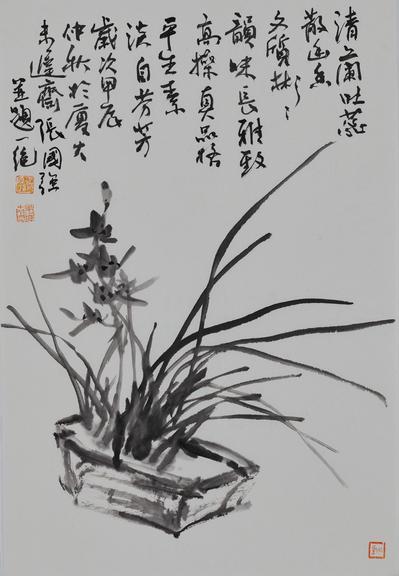 清蘭吐蕊
散幽香
文質彬〻
韻味長雅致
高操真品格
平生素
淡自芬芳
歲次甲辰
仲秋於廈大
齋張國強
並題一絕